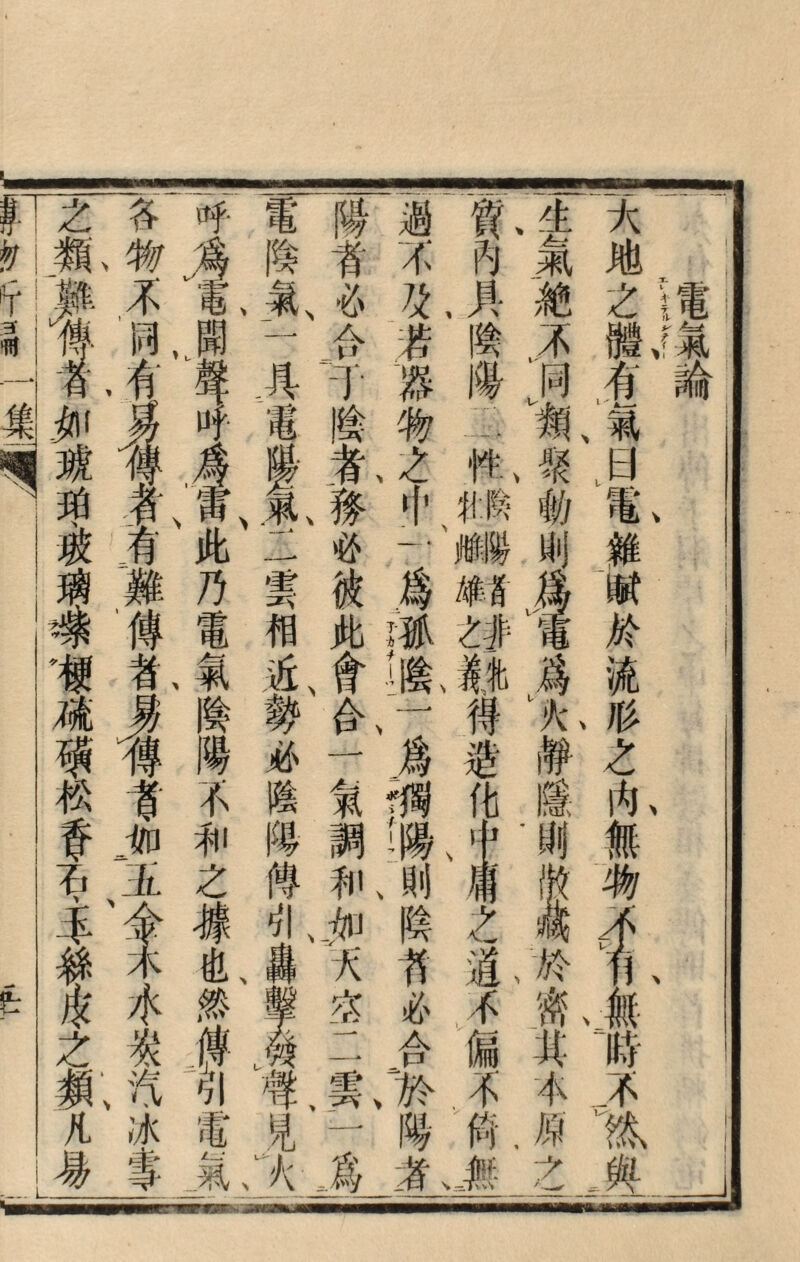 電氣論
大地之體有氣曰電、雜賦於流形之内、無物不有、無時不然、與
生氣絶不同類、聚動則爲電爲火、靜隱則散藏於密、其本原之
質、内具陰陽二性、陰陽者非牝牡雌雄之義得造化中庸之道、不偏不倚、無
過不及、若器物之中、一爲孤陰、一爲獨陽、則陰者必合於陽者、
陽者必合于陰者、務必彼此會合、一氣調和、如天空二雲、一爲
電陰氣、一具電陽氣、二雲相近、勢必陰陽傳引、轟擊發聲、見火
呼爲電、聞聲呼爲雷、此乃電氣陰陽不和之據也、然傳引電氣、
各物不同、有易傳者、有難傳者、易傳者如五金木水炭汽冰雪
之類、難傳者、如琥珀玻璃紫梗硫磺松香石玉絲皮之類、凡易
博物新編 一集